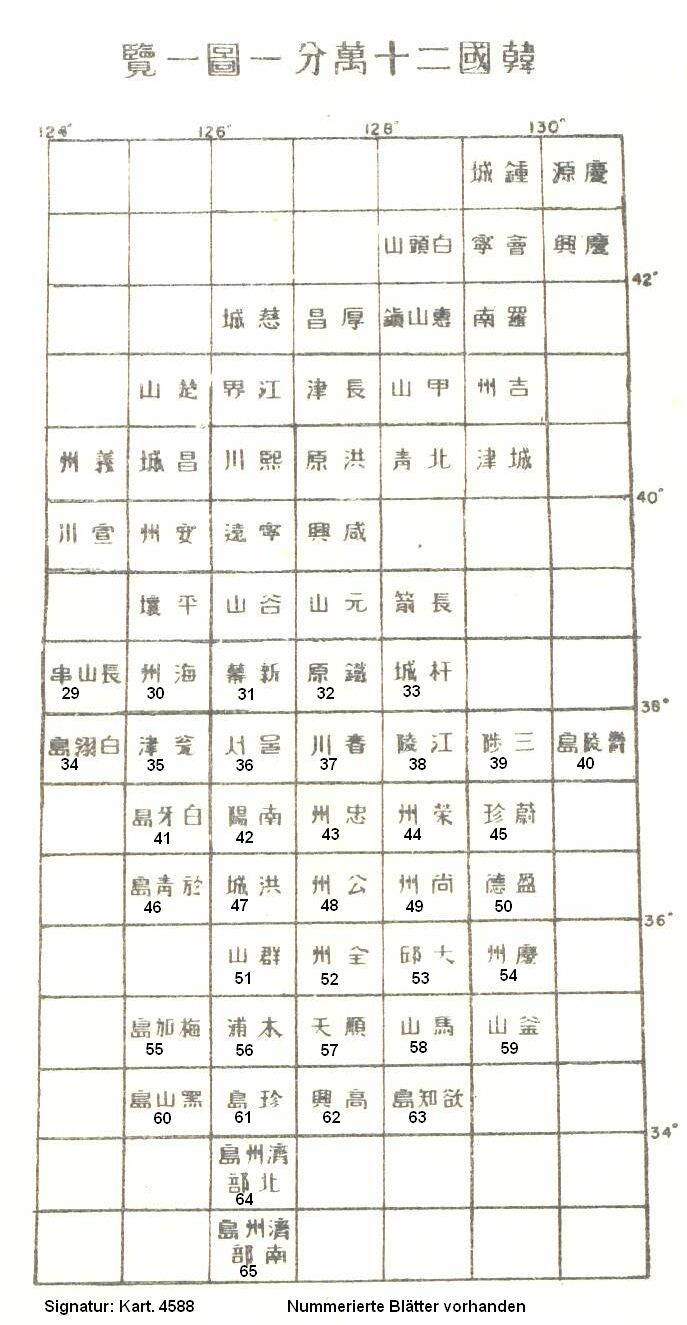 韓國二十萬分一圖一覽
124° 126° 128° 130°
鍾城 慶源
白頭山 會寧 慶興
42°
慈城 厚昌 惠山鎭 羅南
楚山 江界 長津 甲山 吉州
義州 昌城 熙川 洪原 北靑 城津
40°
宣川 安州 寧遠 咸興
平壤 谷山 元山 長箭
長山串 海州 新幕 鐵原 杆城
29 30 31 32 33
38°
白翎島 瓮津 서울 春川 江陵 三陟 鬱陵島
34 35 36 37 38 39 40
白牙島 南陽 忠州 榮州 蔚珍
41 42 43 44 45
於靑島 洪城 公州 尙州 盈德
46 47 48 49 50
36°
群山 全州 大邱 慶州
51 52 53 54
梅加島 木浦 順天 馬山 釜山
55 56 57 58 59
黑山島 珍島 高興 欲知島
60 61 62 63
34°
濟州島
北部
64
濟州島
南部
65
Signatur: Kart. 4588 Nummerierte Blätter vorhanden